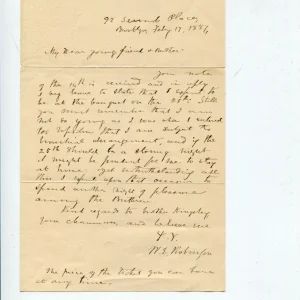 92 Second Place
Brooklyn Feby 17, 1886
My Dear young friend & Brother
Your note
of the 14th is received and in reply
I beg leave to state that I expect to
be at the banquet on the 25th. Still
you must remember that I am
not so young as I was when I entered
that I am subject to
bronchial derangement, and if the
25th should be a stormy night
it might be prudent for me to stay
at home, yet notwithstanding all
this I
spend another night of pleasure
among the Brethren
Kind regard to brother Kingsley
Your chairman and believe me
W. E. Robinson
The price of the ticket you can have
at any time.